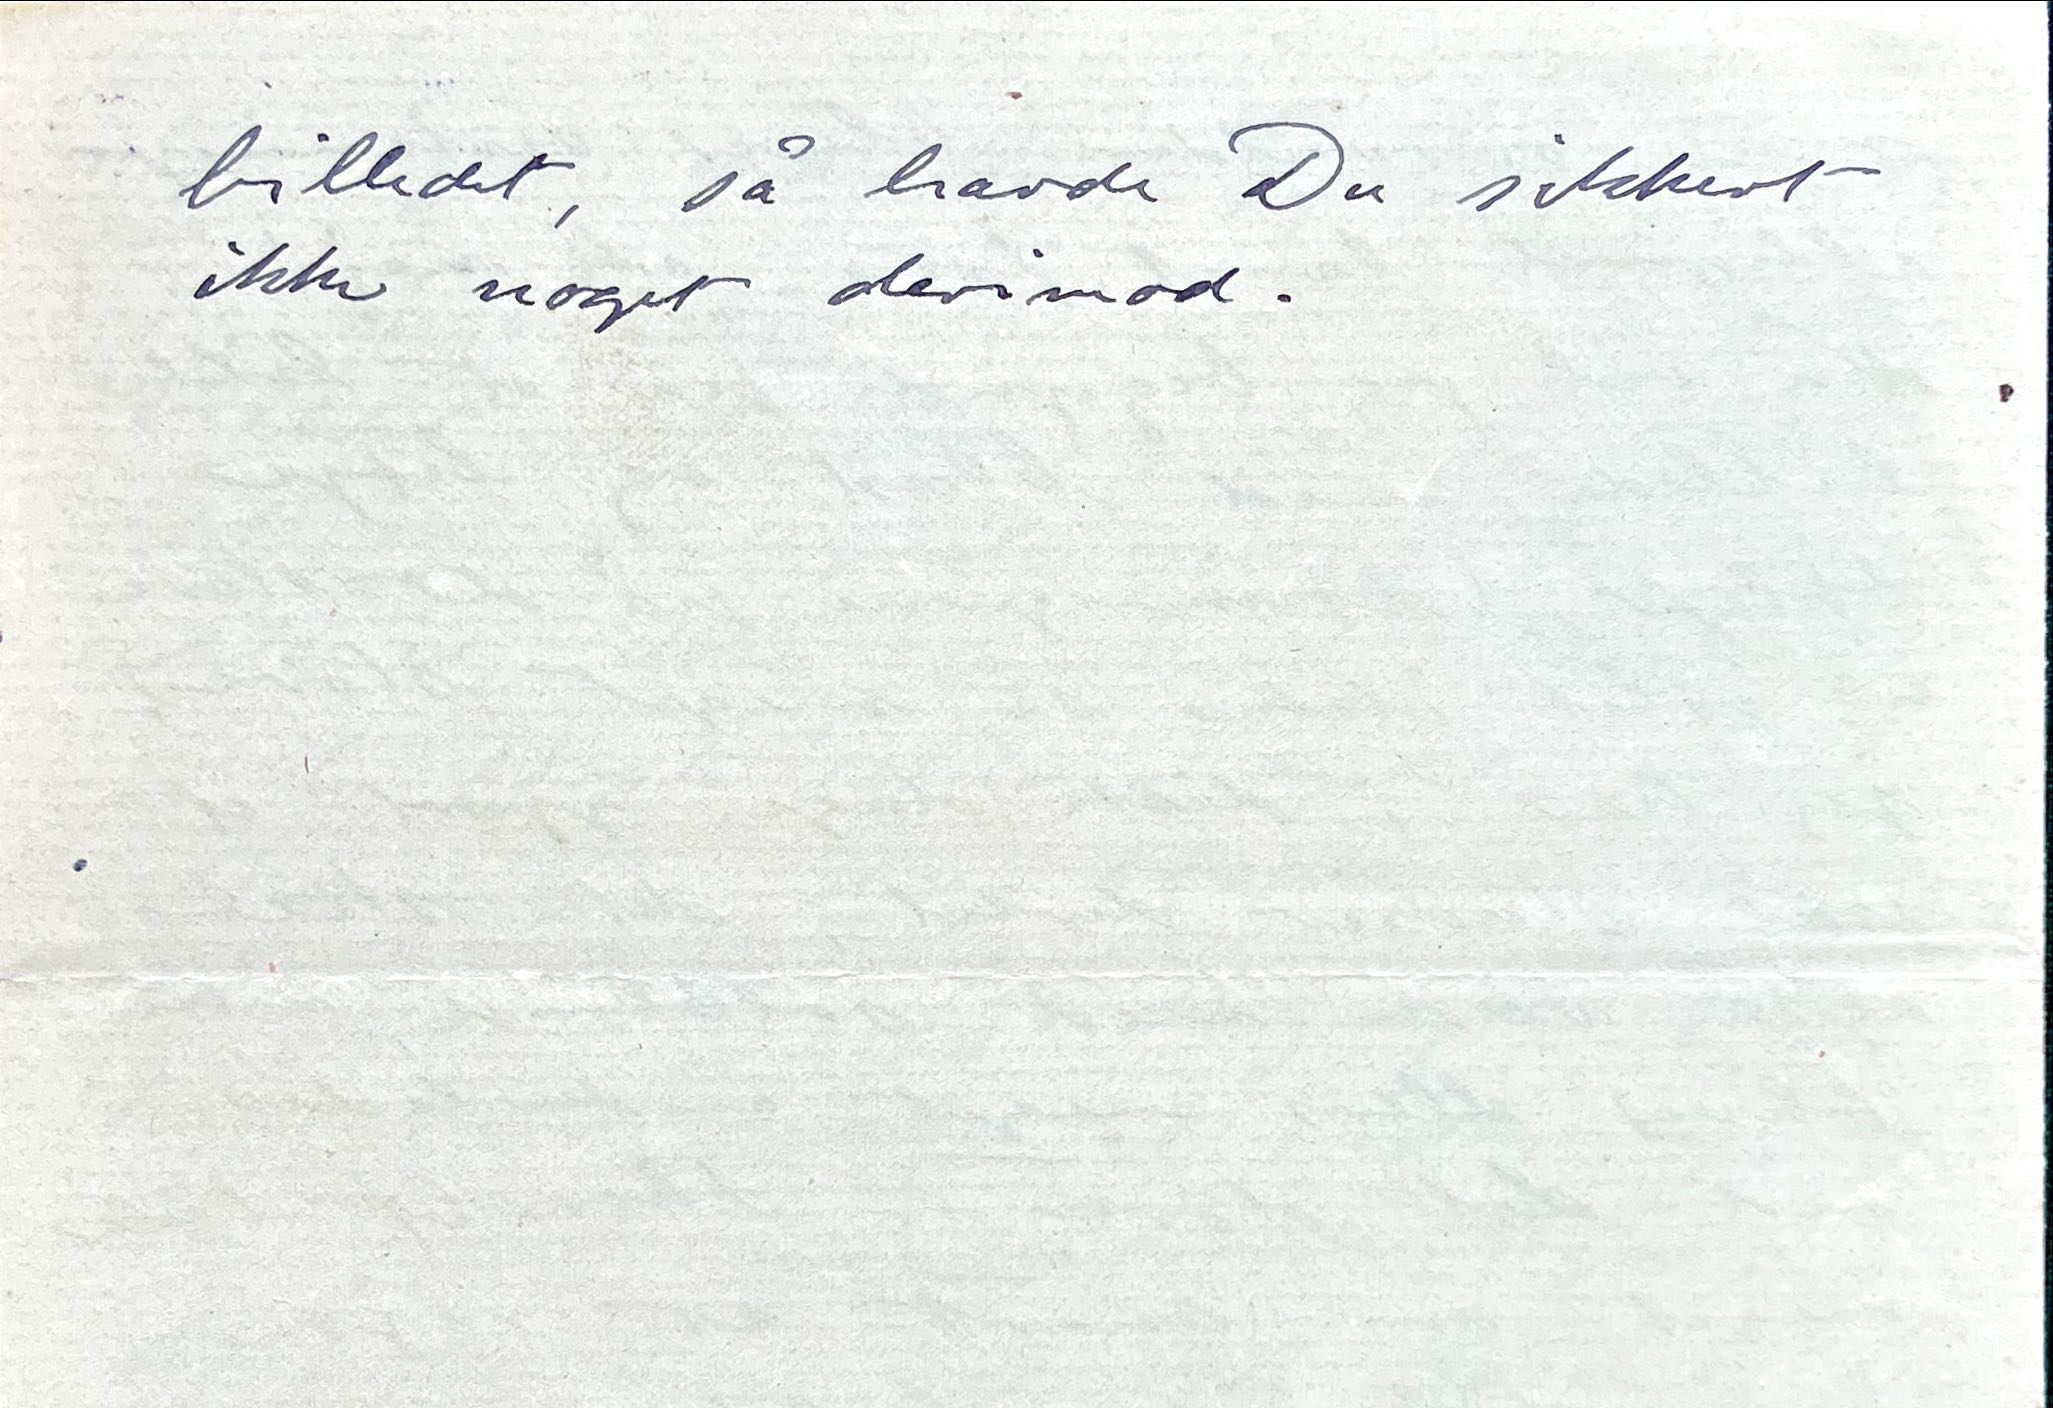 billedet, så havde Du sikkert
ikke noget derimod.